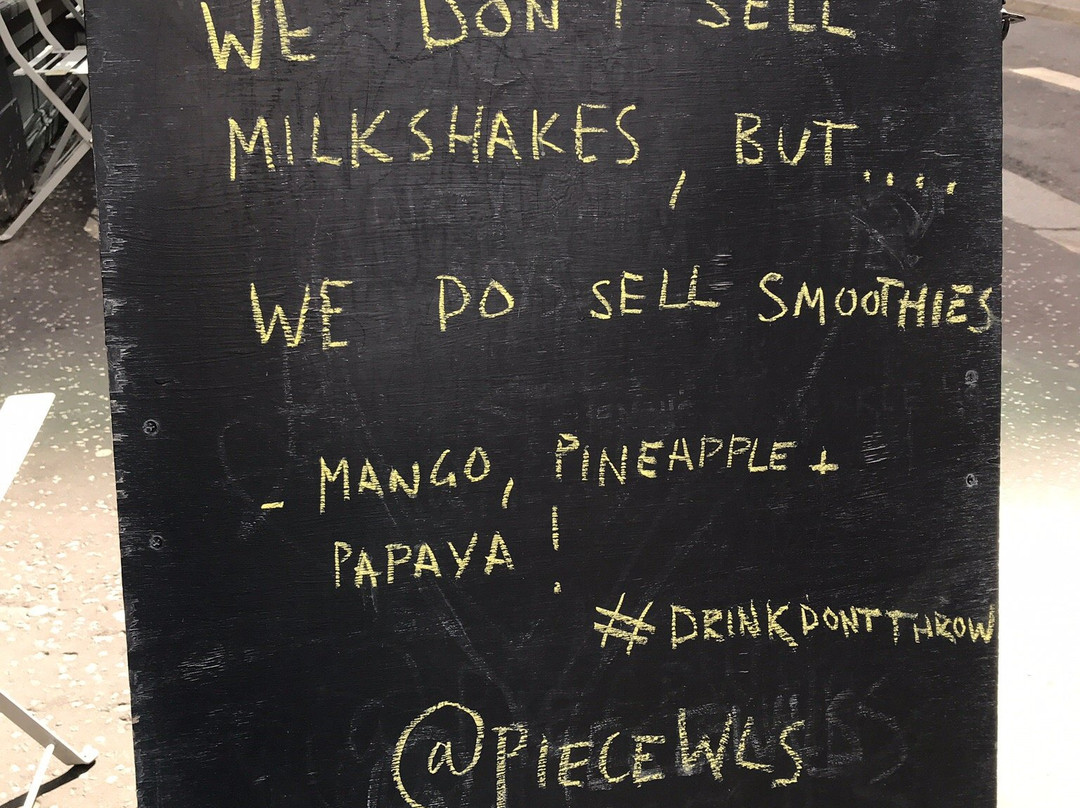 WE DON'T SELL
MILKSHAKES, BUT....
WE DO SELL SMOOTHIES
- MANGO, PINEAPPLE +
PAPAYA!
#DRINKDONTTHROW
@PIECEWLS